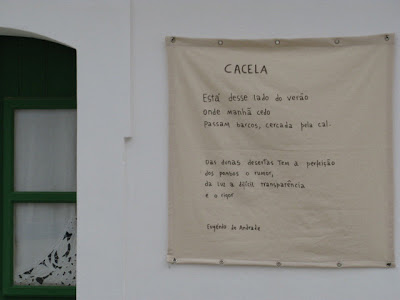 CACELA
Está desse lado do verão
onde manhã cedo
Passam barcos, cercada pela cal.
Das dunas desertas tem a perfeição
dos pombos o rumor,
da luz a difícil transparência
e o rigor
Eugénio de Andrade